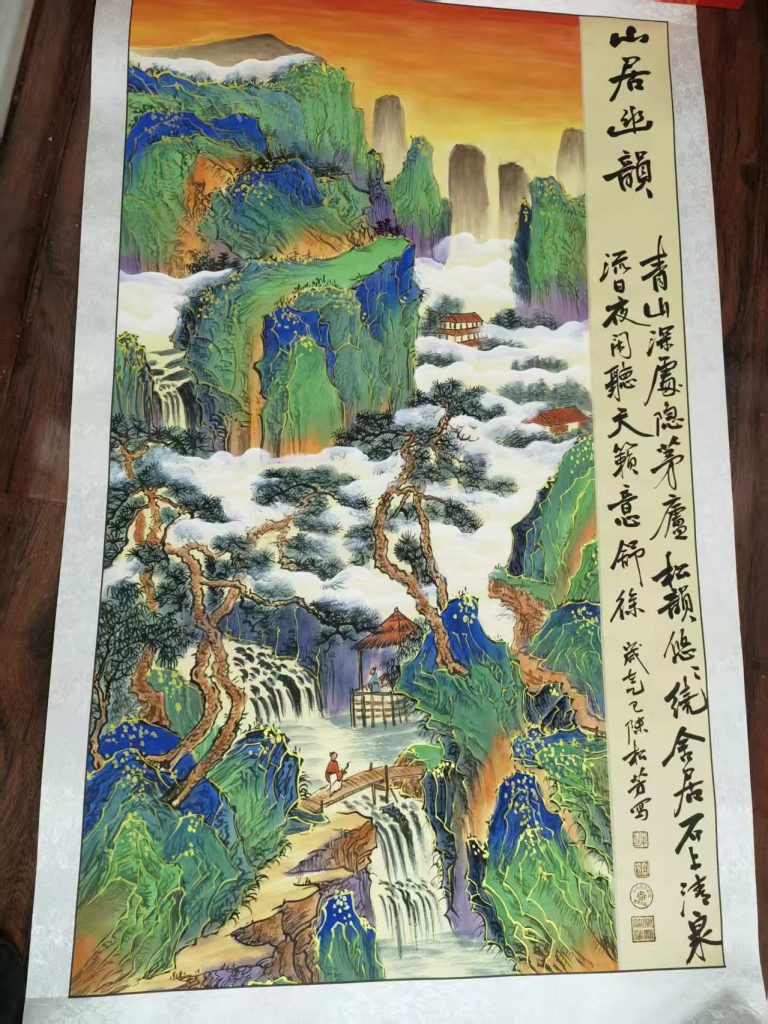 山居幽韻
青山深處隐茅廬松韻悠々繞舍居石上清泉
流日夜闲聽天籟意舒徐 歲乙巳陳松芳写